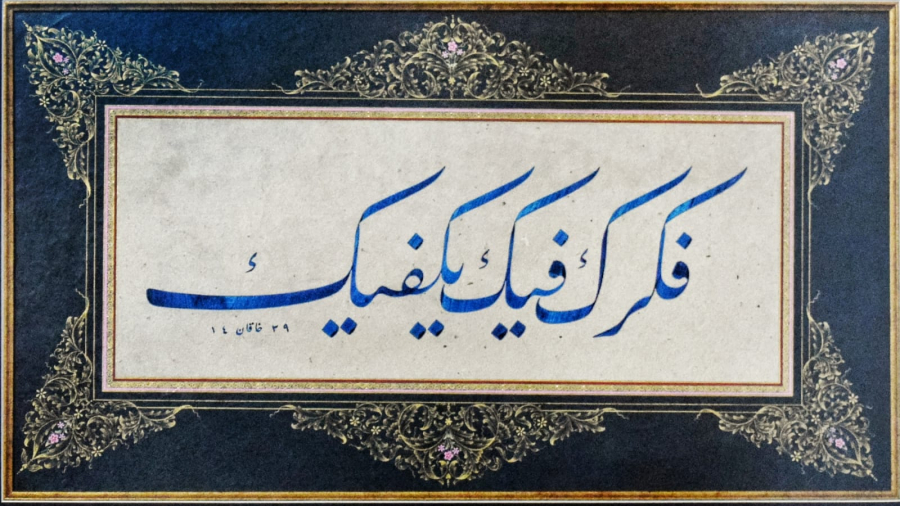 فكرك فيك يكفيك
٣٩ خاقان ١٤